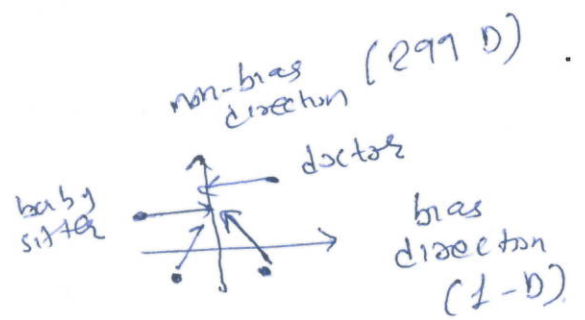 non-bias (299 D)
direction
doctor
baby
sitter
bias
direction
(1-D)